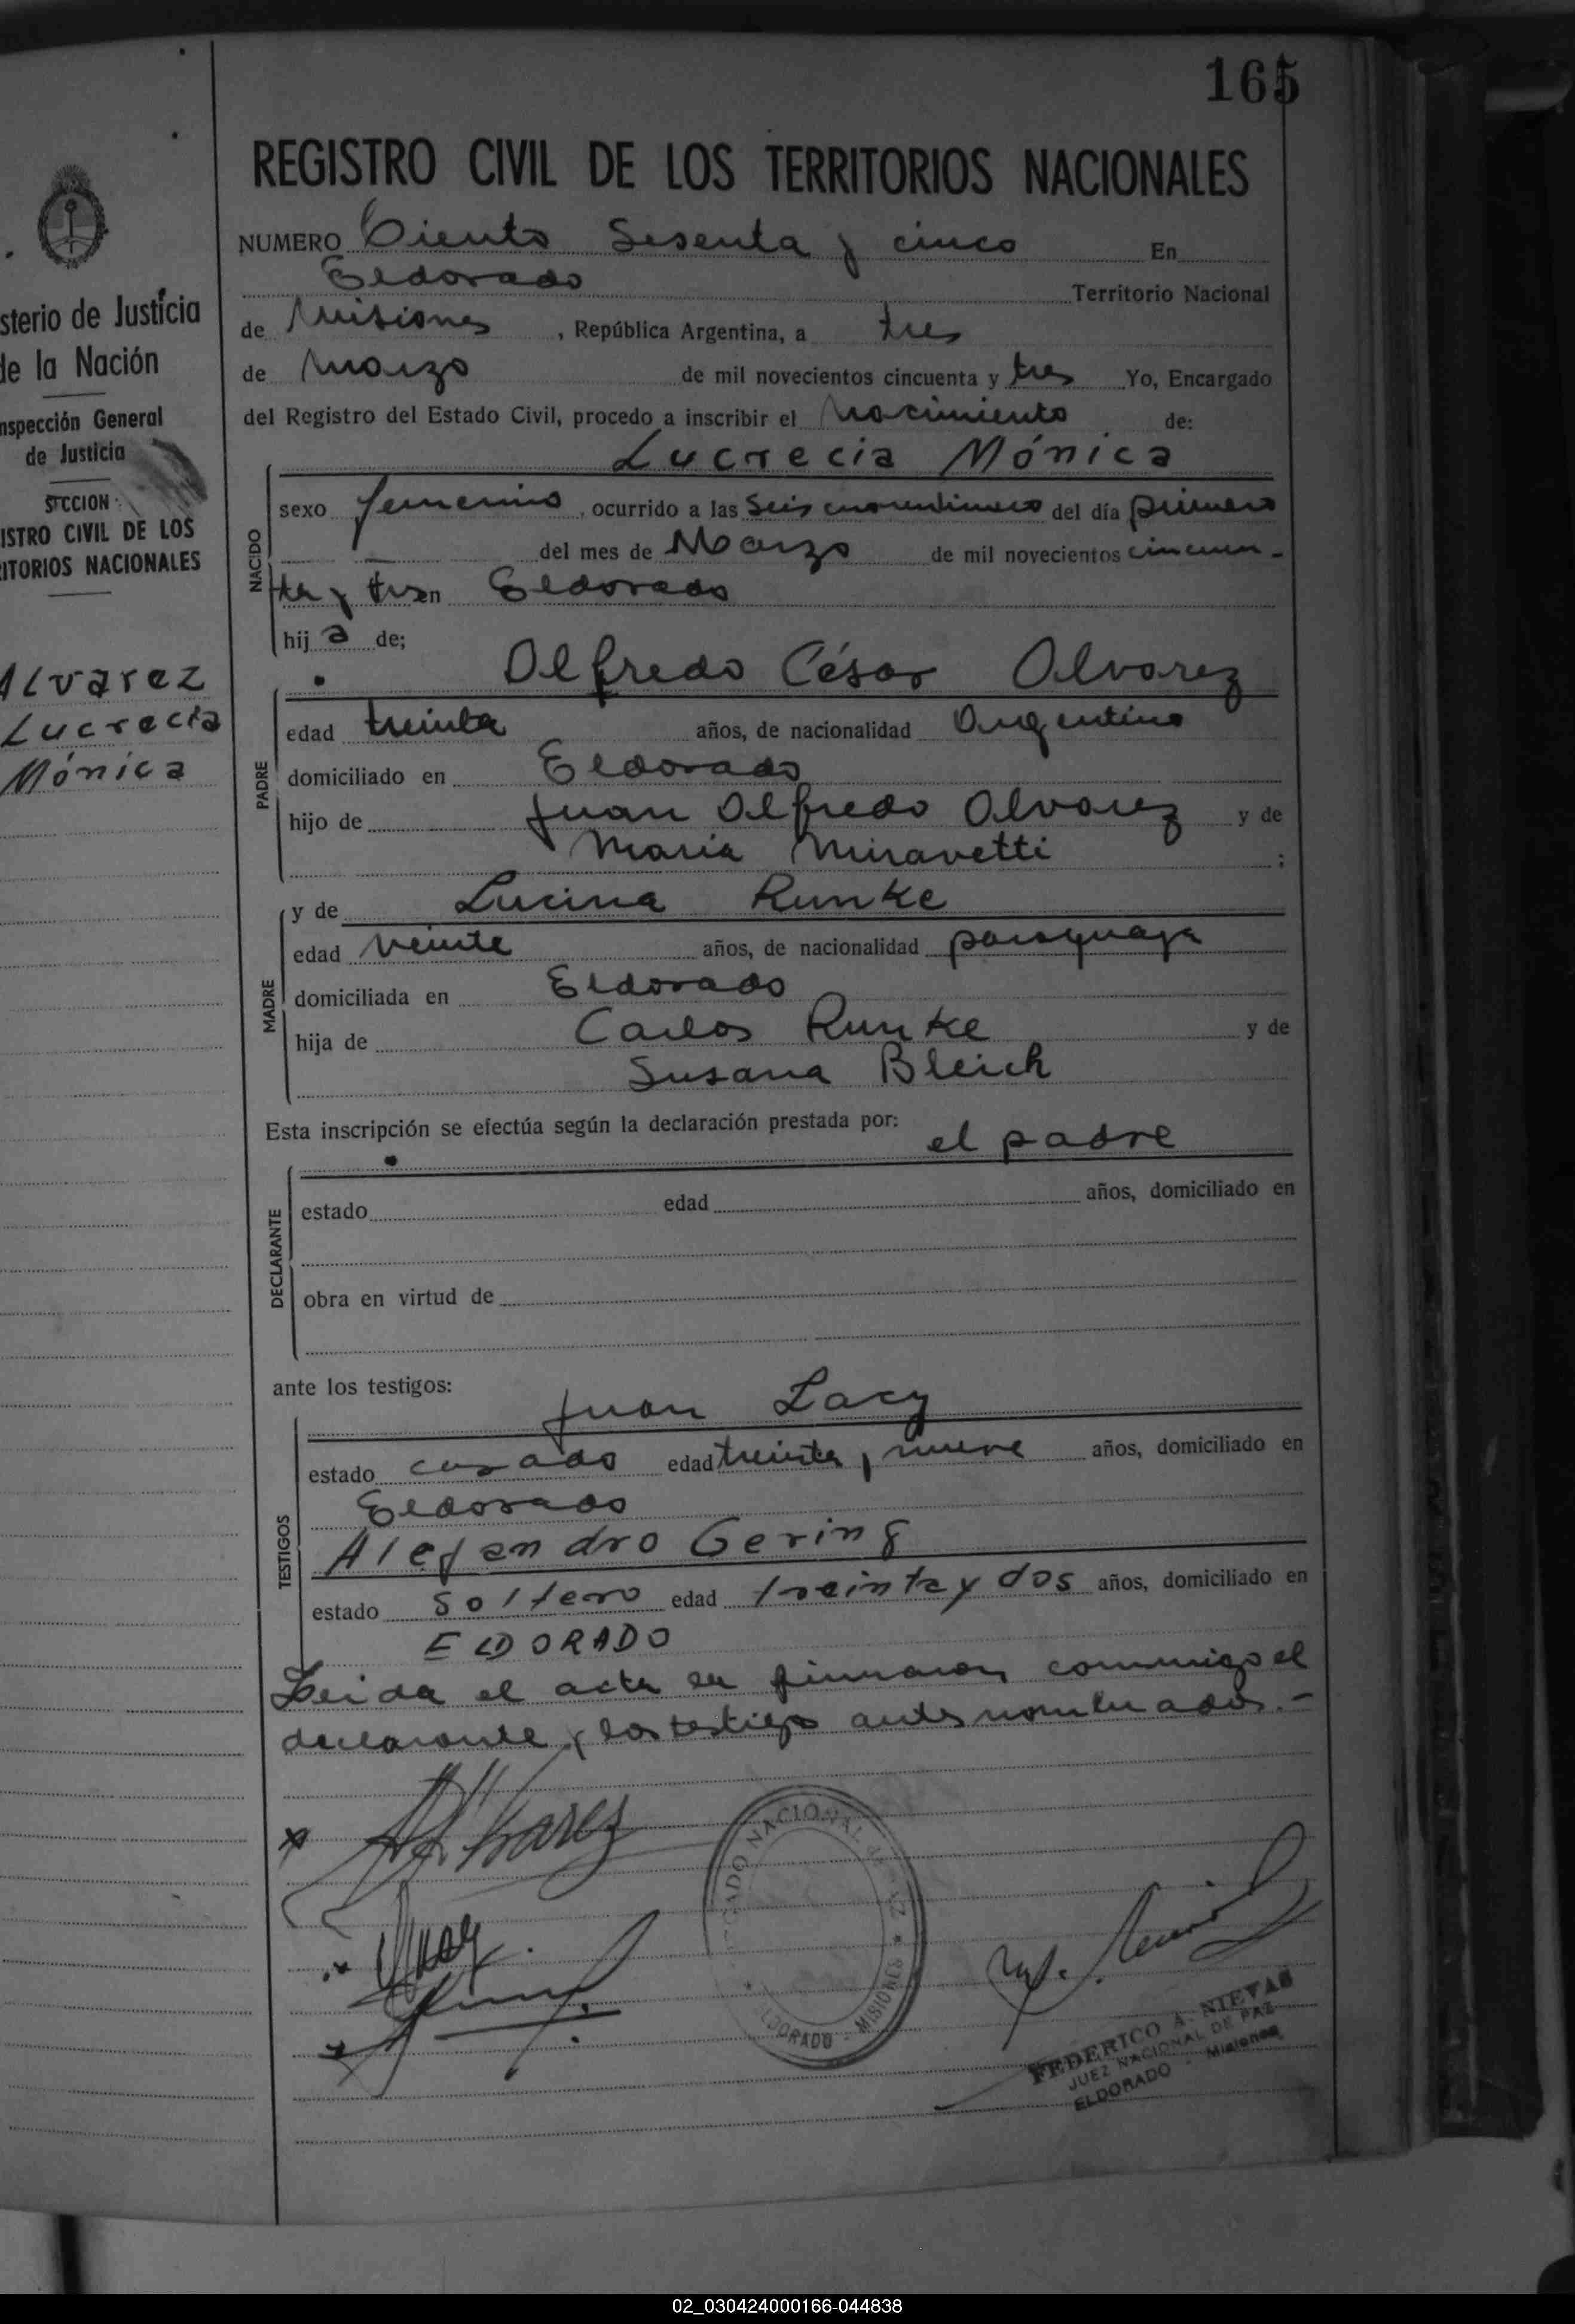 165
REGISTRO CIVIL DE LOS TERRITORIOS NACIONALES
NUMERO Ciento Sesenta y cinco En
Eldorado Territorio Nacional
de Misiones, República Argentina, a tres
de Marzo de mil novecientos cincuenta y tres Yo, Encargado
del Registro del Estado Civil, procedo a inscribir el Nacimiento de:
Lucrecia Mónica
NACIDO
sexo femenino, ocurrido a las seis cuarenticinco del día primero
del mes de Marzo de mil novecientos cincuen-
ta y tres en Eldorado
hija de;
Alfredo César Alvarez
PADRE
edad treinta años, de nacionalidad Argentino
domiciliado en Eldorado
hijo de Juan Alfredo Alvarez y de
Maria Miravetti ;
y de Lucina Runke
MADRE
edad veinte años, de nacionalidad paraguaya
domiciliada en Eldorado
hija de Carlos Runke y de
Susana Bleich
Esta inscripción se efectúa según la declaración prestada por:
el padre
DECLARANTE
estado edad años, domiciliado en
obra en virtud de
ante los testigos:
Juan Lacy
TESTIGOS
estado casado edad treinta y nueve años, domiciliado en
Eldorado
Alejandro Gering
estado soltero edad treinta y dos años, domiciliado en
ELDORADO
Leida el acta la firmaron conmigo el
declarante y los testigos antes nombrados.-
Alvarez
NACIONAL
ELDORADO - MISIONES
FEDERICO A. NIEVAS
JUEZ NACIONAL DE PAZ
ELDORADO - Misiones
sterio de Justicia
de la Nación
nspección General
de Justicia
SECCION
ISTRO CIVIL DE LOS
ITORIOS NACIONALES
Alvarez
Lucrecia
Mónica
02_030424000166-044838